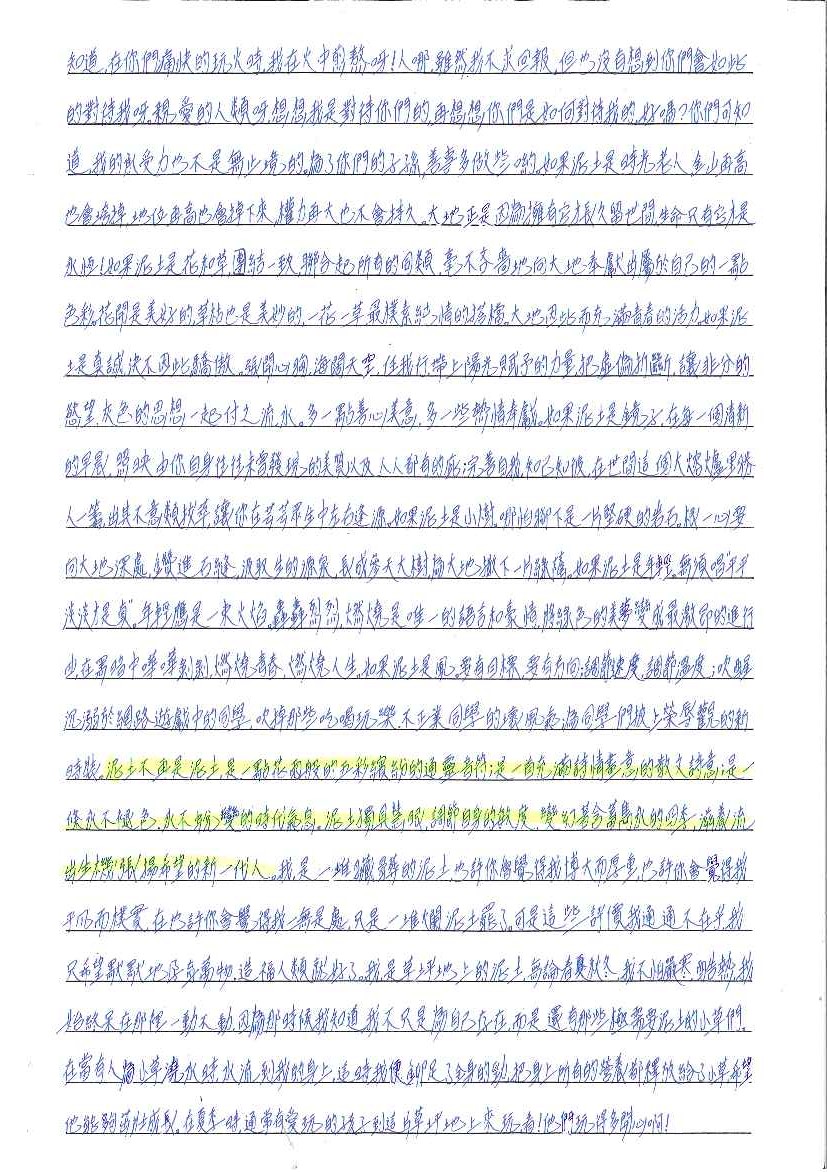 知道,在你們痛快的玩火時,我在火中煎熬呀!人哪,雖然我不求回報,但也沒有想到你們會如此
的對待我呀.親愛的人類呀,想想我是對待你們的,再想想你們是如何對待我的,好嗎?你們可知
道,我的承受力也不是無止境的.為了你們的子孫,善事多做些喲.如果泥土是時光老人,金山再高
也會塌掉,地位再高也會掉下來,權力再大也不會持久。大地正是因為擁有它才長久留世間,生命只有它才是
永恆!如果泥土是花和草,團結一致,聯合起所有的同類,毫不吝嗇地向大地奉獻出屬於自己的一點
色彩。花開是美好的,草枯也是美妙的,一花一草最樸素純情的搭檔。大地因此而充滿青春的活力。如果泥
土是真誠,決不因此驕傲。張開心胸,海闊天空,任我行,帶上陽光賦予的力量,把虛偽折斷,讓非分的
慾望,灰色的思想,一起付之流水。多一點善心美意,多一些熱情奉獻。如果泥土是鏡子,在每一個清新
的早晨,照映出你自身往往未曾發現的美質以及人人都有的疵;完善自我,知己知彼,在世間這個大熔爐里勝
人一籌,出其不意類拔萃,讓你在芸芸眾生中左右逢源。如果泥土是小樹。哪怕腳下是一片堅硬的岩石。我一心要
向大地深處,鑽進石縫,汲取生的源泉,長成參天大樹,為大地撒下一片綠蔭。如果泥土是年輕。無須唱"平平
淡淡才是真"。年輕應是一束火焰。轟轟烈烈,燃燒是唯一的語言和豪情,將綠色的美夢變成最激昂的進行
曲,在黑暗中嗶嗶剝剝,燃燒青春,燃燒人生。如果泥土是風。要有目標,要有方向;調節速度,調節溫度;吹醒
沉溺於網路遊戲中的同學,吹掉那些吃喝玩樂.不正業同學的壞風氣;為同學們披上榮辱觀的新
時裝。泥土不再是泥土,是一點花翅般的五彩繽紛的通靈音符;是一首充滿詩情畫意的散文詩意;是一
條永不褪色、永不改變的時代氣息。泥土獨具慧眼,調節自身的敏度,變幻著含蓄雋永的四季,滋養流
出生機,張揚希望的新一代人。我,是一堆骯髒的泥土,也許你會覺得我博大而厚重,也許你會覺得我
平凡而樸實,在也許你會覺得我一無是處,只是一堆爛泥土罷了。可是這些評價我通通不在乎,我
只希望默默地孕育萬物,造福人類就好了。我是草坪地上的泥土,無論春夏秋冬,我不怕嚴寒、酷熱,我
始終呆在那裡一動不動,因為那時候我知道,我不只是為自己存在,而是還有那些極需要泥土的小草們。
在當有人為小草澆水時,水流到我的身上,這時我便鉚足了全身的勁,把身上所有的營養都釋放給了小草,希望
他能夠茁壯成長。在夏季時,通常有愛玩的孩子到這片草坪地上來玩耍!他們玩得多開心啊!